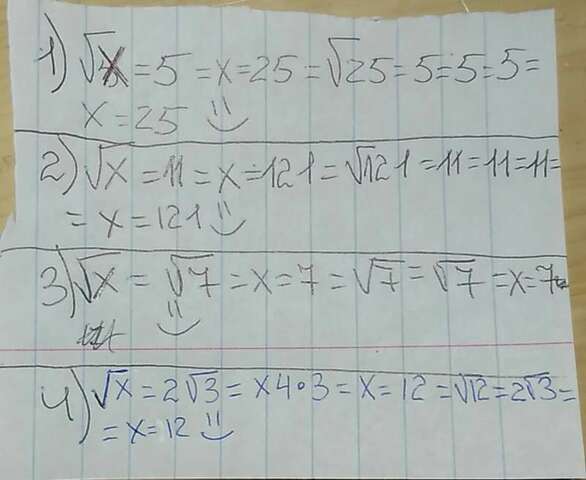 1) √x = 5 = x = 25 = √25 = 5 = 5 = 5 =
x = 25
2) √x = 11 = x = 121 = √121 = 11 = 11 = 11 =
= x = 121
3) √x = √7 = x = 7 = √7 = √7 = x = 7
4) √x = 2√3 = x 4•3 = x = 12 = √12 = 2√3 =
= x = 12